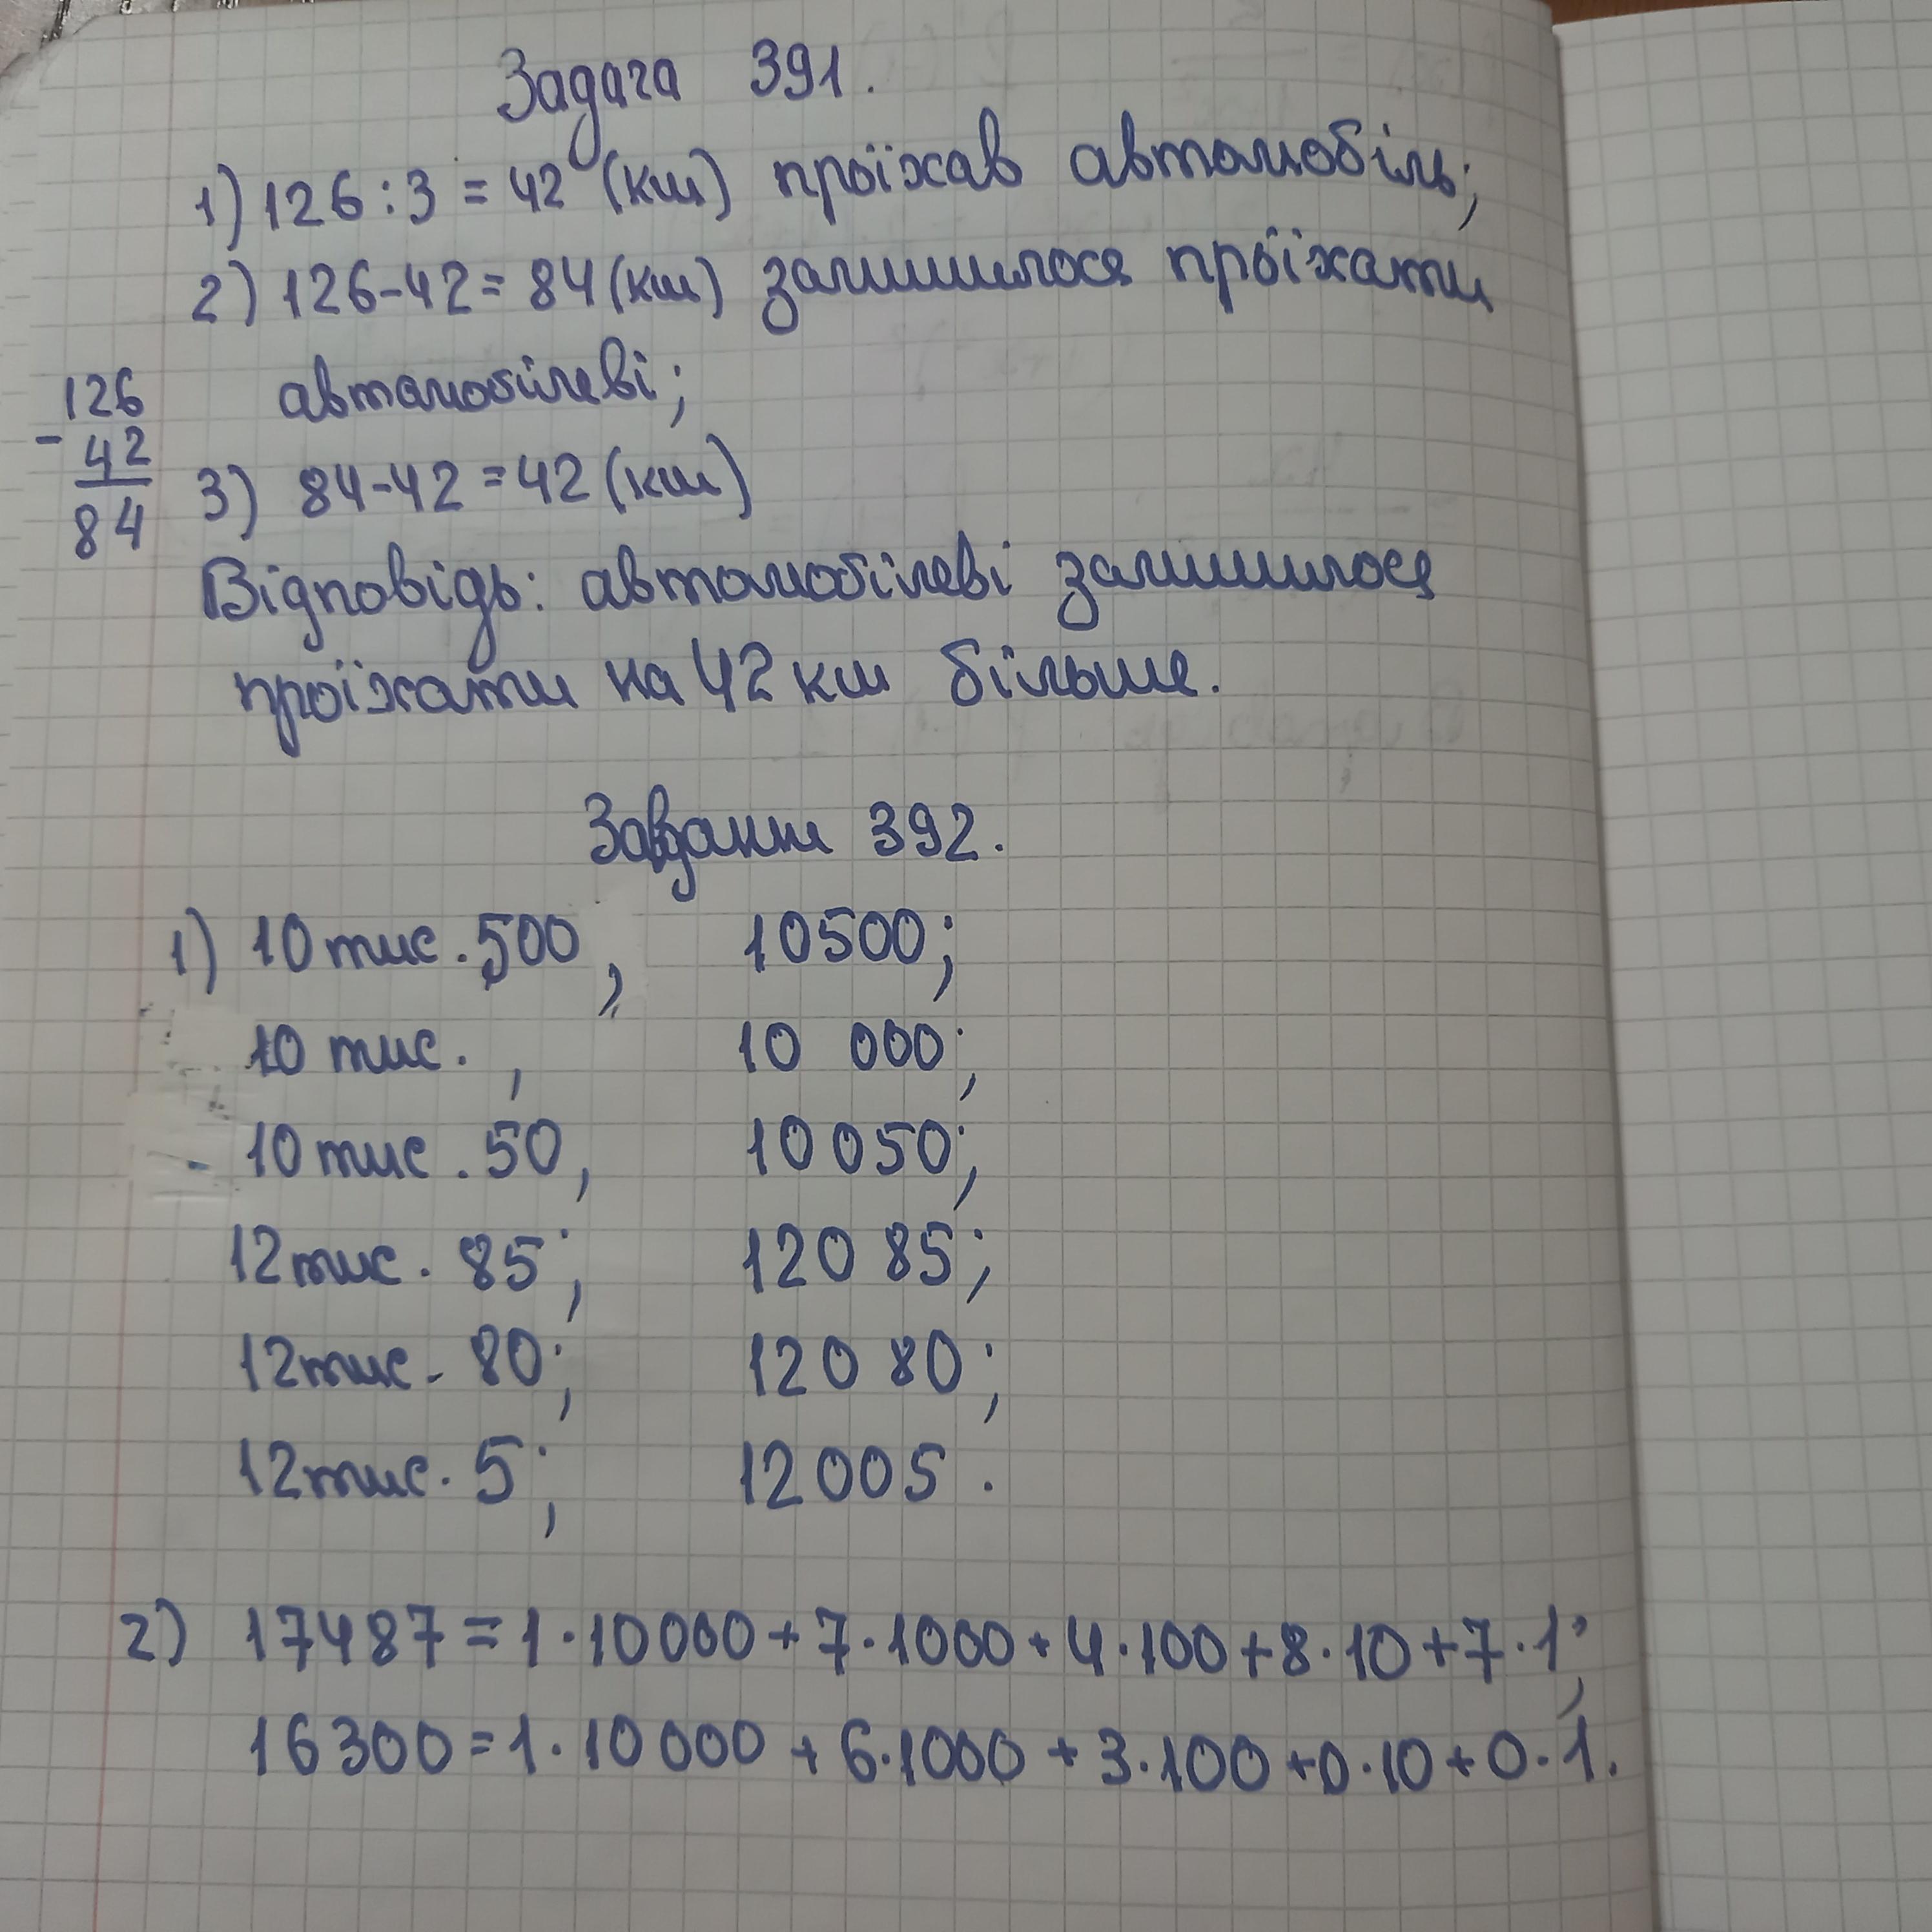 Задача 391.
1) 126 : 3 = 42 (км) проїхав автомобіль;
2) 126 - 42 = 84 (км) залишилося проїхати
автомобілеві;
126
- 42
84
3) 84 - 42 = 42 (км)
Відповідь: автомобілеві залишилося
проїхати на 42 км більше.
Завдання 392.
1) 10 тис. 500, 10500;
10 тис. , 10 000;
10 тис. 50, 10 050;
12 тис. 85; 120 85;
12 тис. 80; 120 80;
12 тис. 5; 12005.
2) 17487 = 1 · 10 000 + 7 · 1000 + 4 · 100 + 8 · 10 + 7 · 1;
16300 = 1 · 10 000 + 6 · 1000 + 3 · 100 + 0 · 10 + 0 · 1.